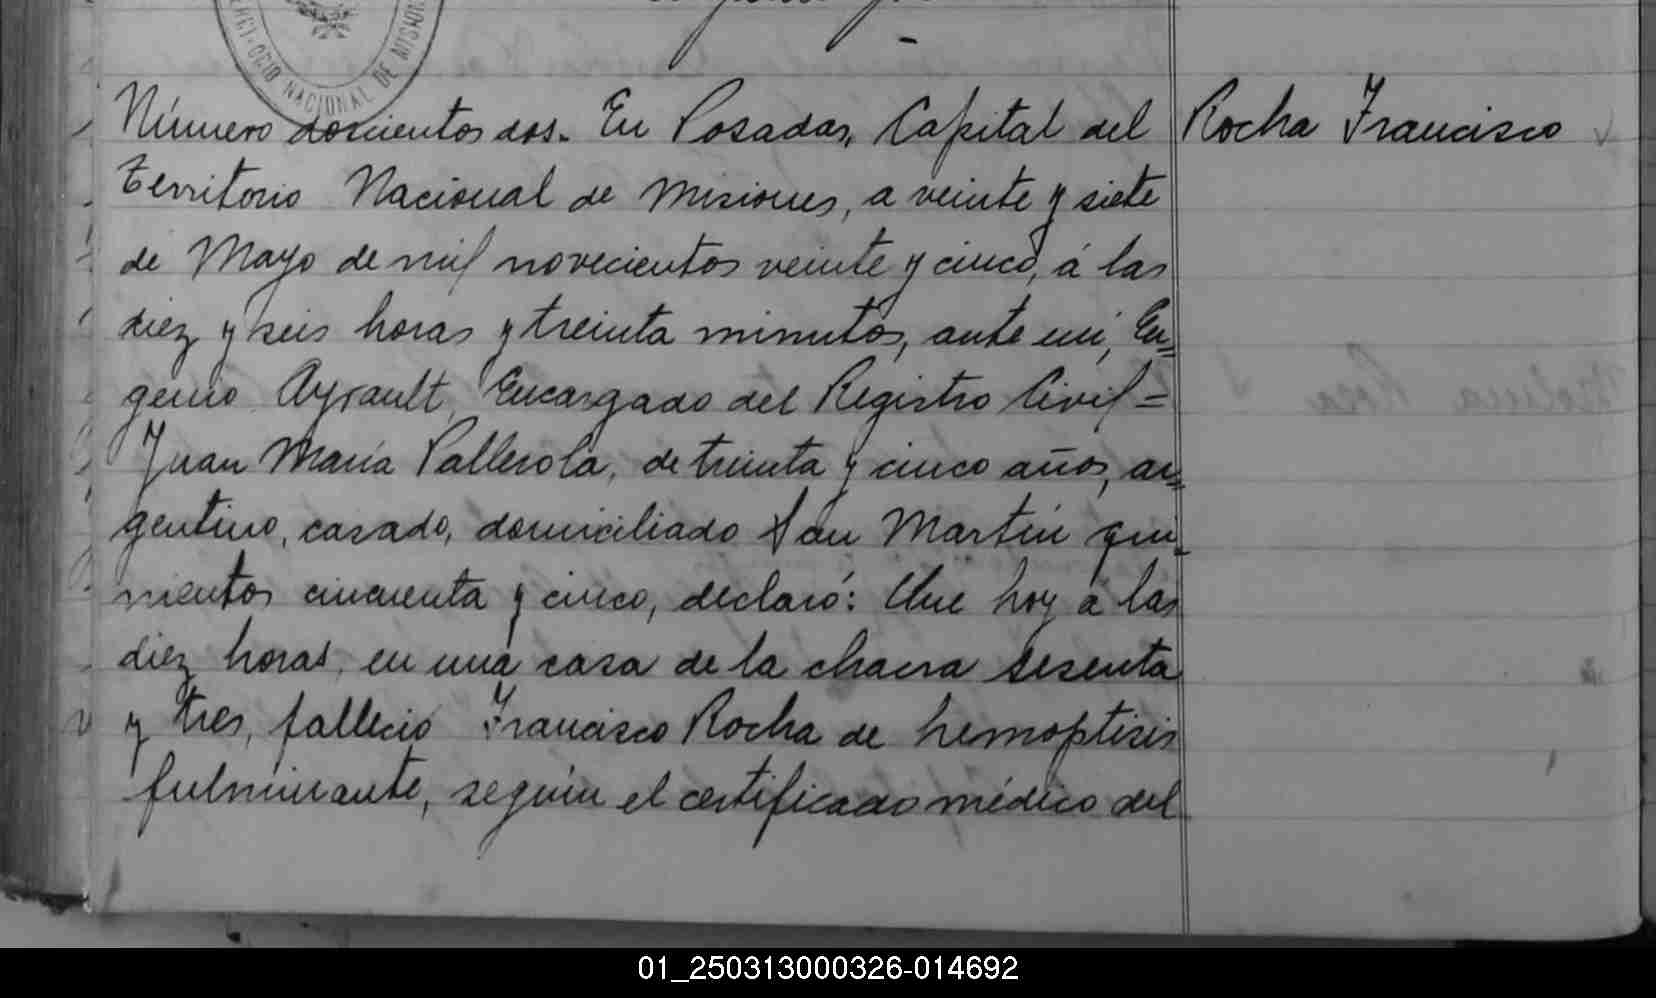 ERRITORIO NACIONAL DE MISION
Número doscientos dos. En Posadas, Capital del
Rocha Francisco
Territorio Nacional de Misiones, a veinte y siete
de Mayo de mil novecientos veinte y cinco, á las
diez y seis horas y treinta minutos, ante mi, Eu=
genio Ayrault, Encargado del Registro Civil=
Juan María Pallerola, de treinta y cinco años, ar=
gentino, casado, domiciliado San Martín qui-
nientos cincuenta y cinco, declaró: Que hoy a las
diez horas, en una casa de la chacra sesenta
y tres, falleció Francisco Rocha de hemoptisis
fulminante, según el certificado médico del
01_250313000326-014692